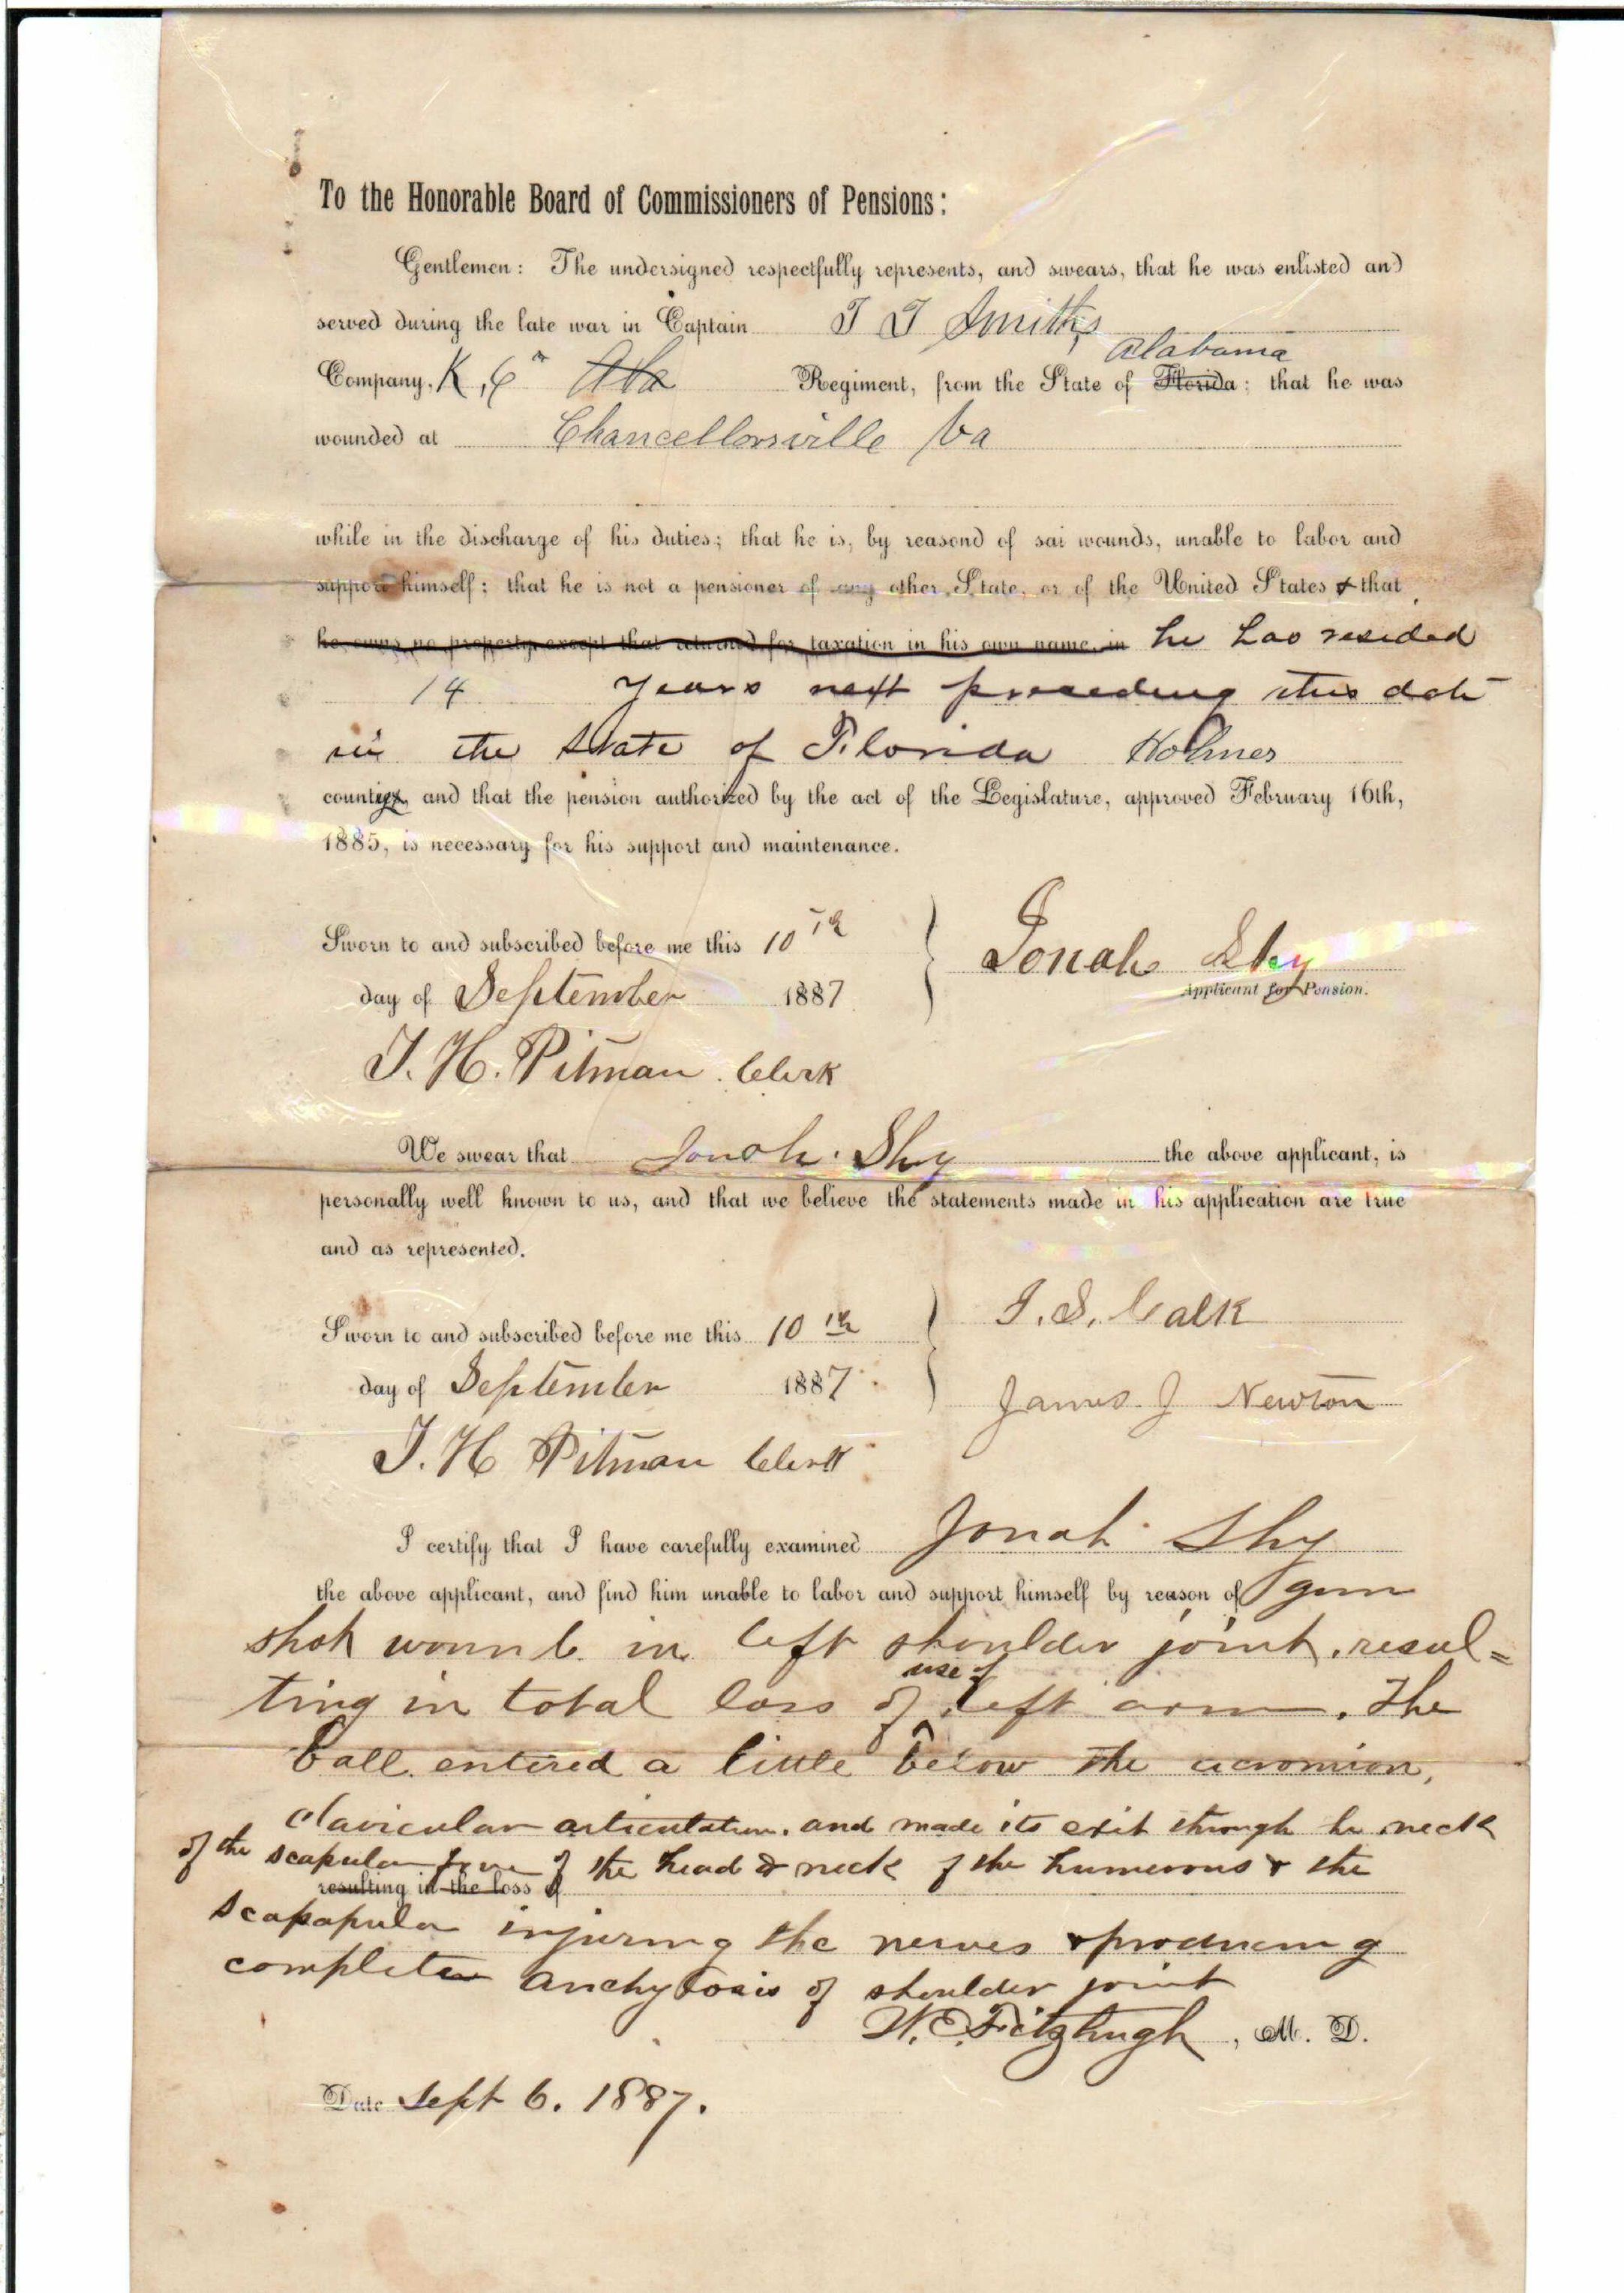 To the Honorable Board of Commissioners of Pensions:
Gentlemen: The undersigned respectfully represents, and swears, that he was enlisted and
served during the late war in Captain T T Smiths
Alabama
Company, K, 6th Ala Regiment, from the State of Florida; that he was
wounded at Chancellorsville Va
while in the discharge of his duties; that he is, by reasond of sai wounds, unable to labor and
support himself; that he is not a pensioner of any other State, or of the United States & that
he owns no property except that returned for taxation in his own name, in he has resided
14 years next preceeding this date
in the State of Florida Holmes
county, and that the pension authorized by the act of the Legislature, approved February 16th,
1885, is necessary for his support and maintenance.
Sworn to and subscribed before me this 10th
Jonah Shy
Applicant for Pension.
day of September 1887
J. H. Pitman Clerk
We swear that Jonah Shy the above applicant, is
personally well known to us, and that we believe the statements made in his application are true
and as represented.
J. S. Calk
Sworn to and subscribed before me this 10th
day of September 1887
James J Newton
J. H Pitman Clerk
I certify that I have carefully examined Jonah Shy
the above applicant, and find him unable to labor and support himself by reason of gun
shot wound in left shoulder joint, resul=
use of
ting in total loss of left arm. The
ball entered a little below the acromion,
clavicular articulation. and made its exit through he neck
of the scapula of the head & neck of the humerous & the
resulting in the loss of
scapapula injuring the nerves & producing
complete anchylosis of shoulder joint
W. E. Fitzhugh, M. D.
Date Sept 6. 1887.